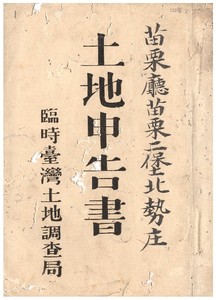 苗栗廳苗栗二堡北勢庄
土地申告書
臨時臺灣土地調查局